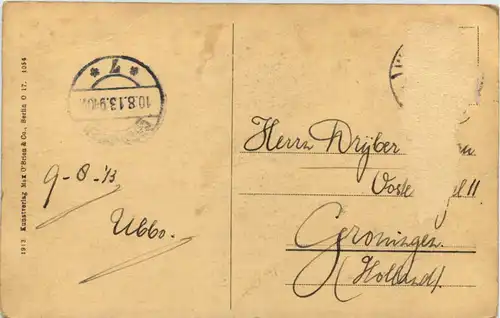 1913 Kunstverlag Max O'Brien & Co., Berlin O 17. 1056
7
10.8.13.9-10
9-8-13
Ubbo.
Herrn Drijber
Groningen.
(Holland).